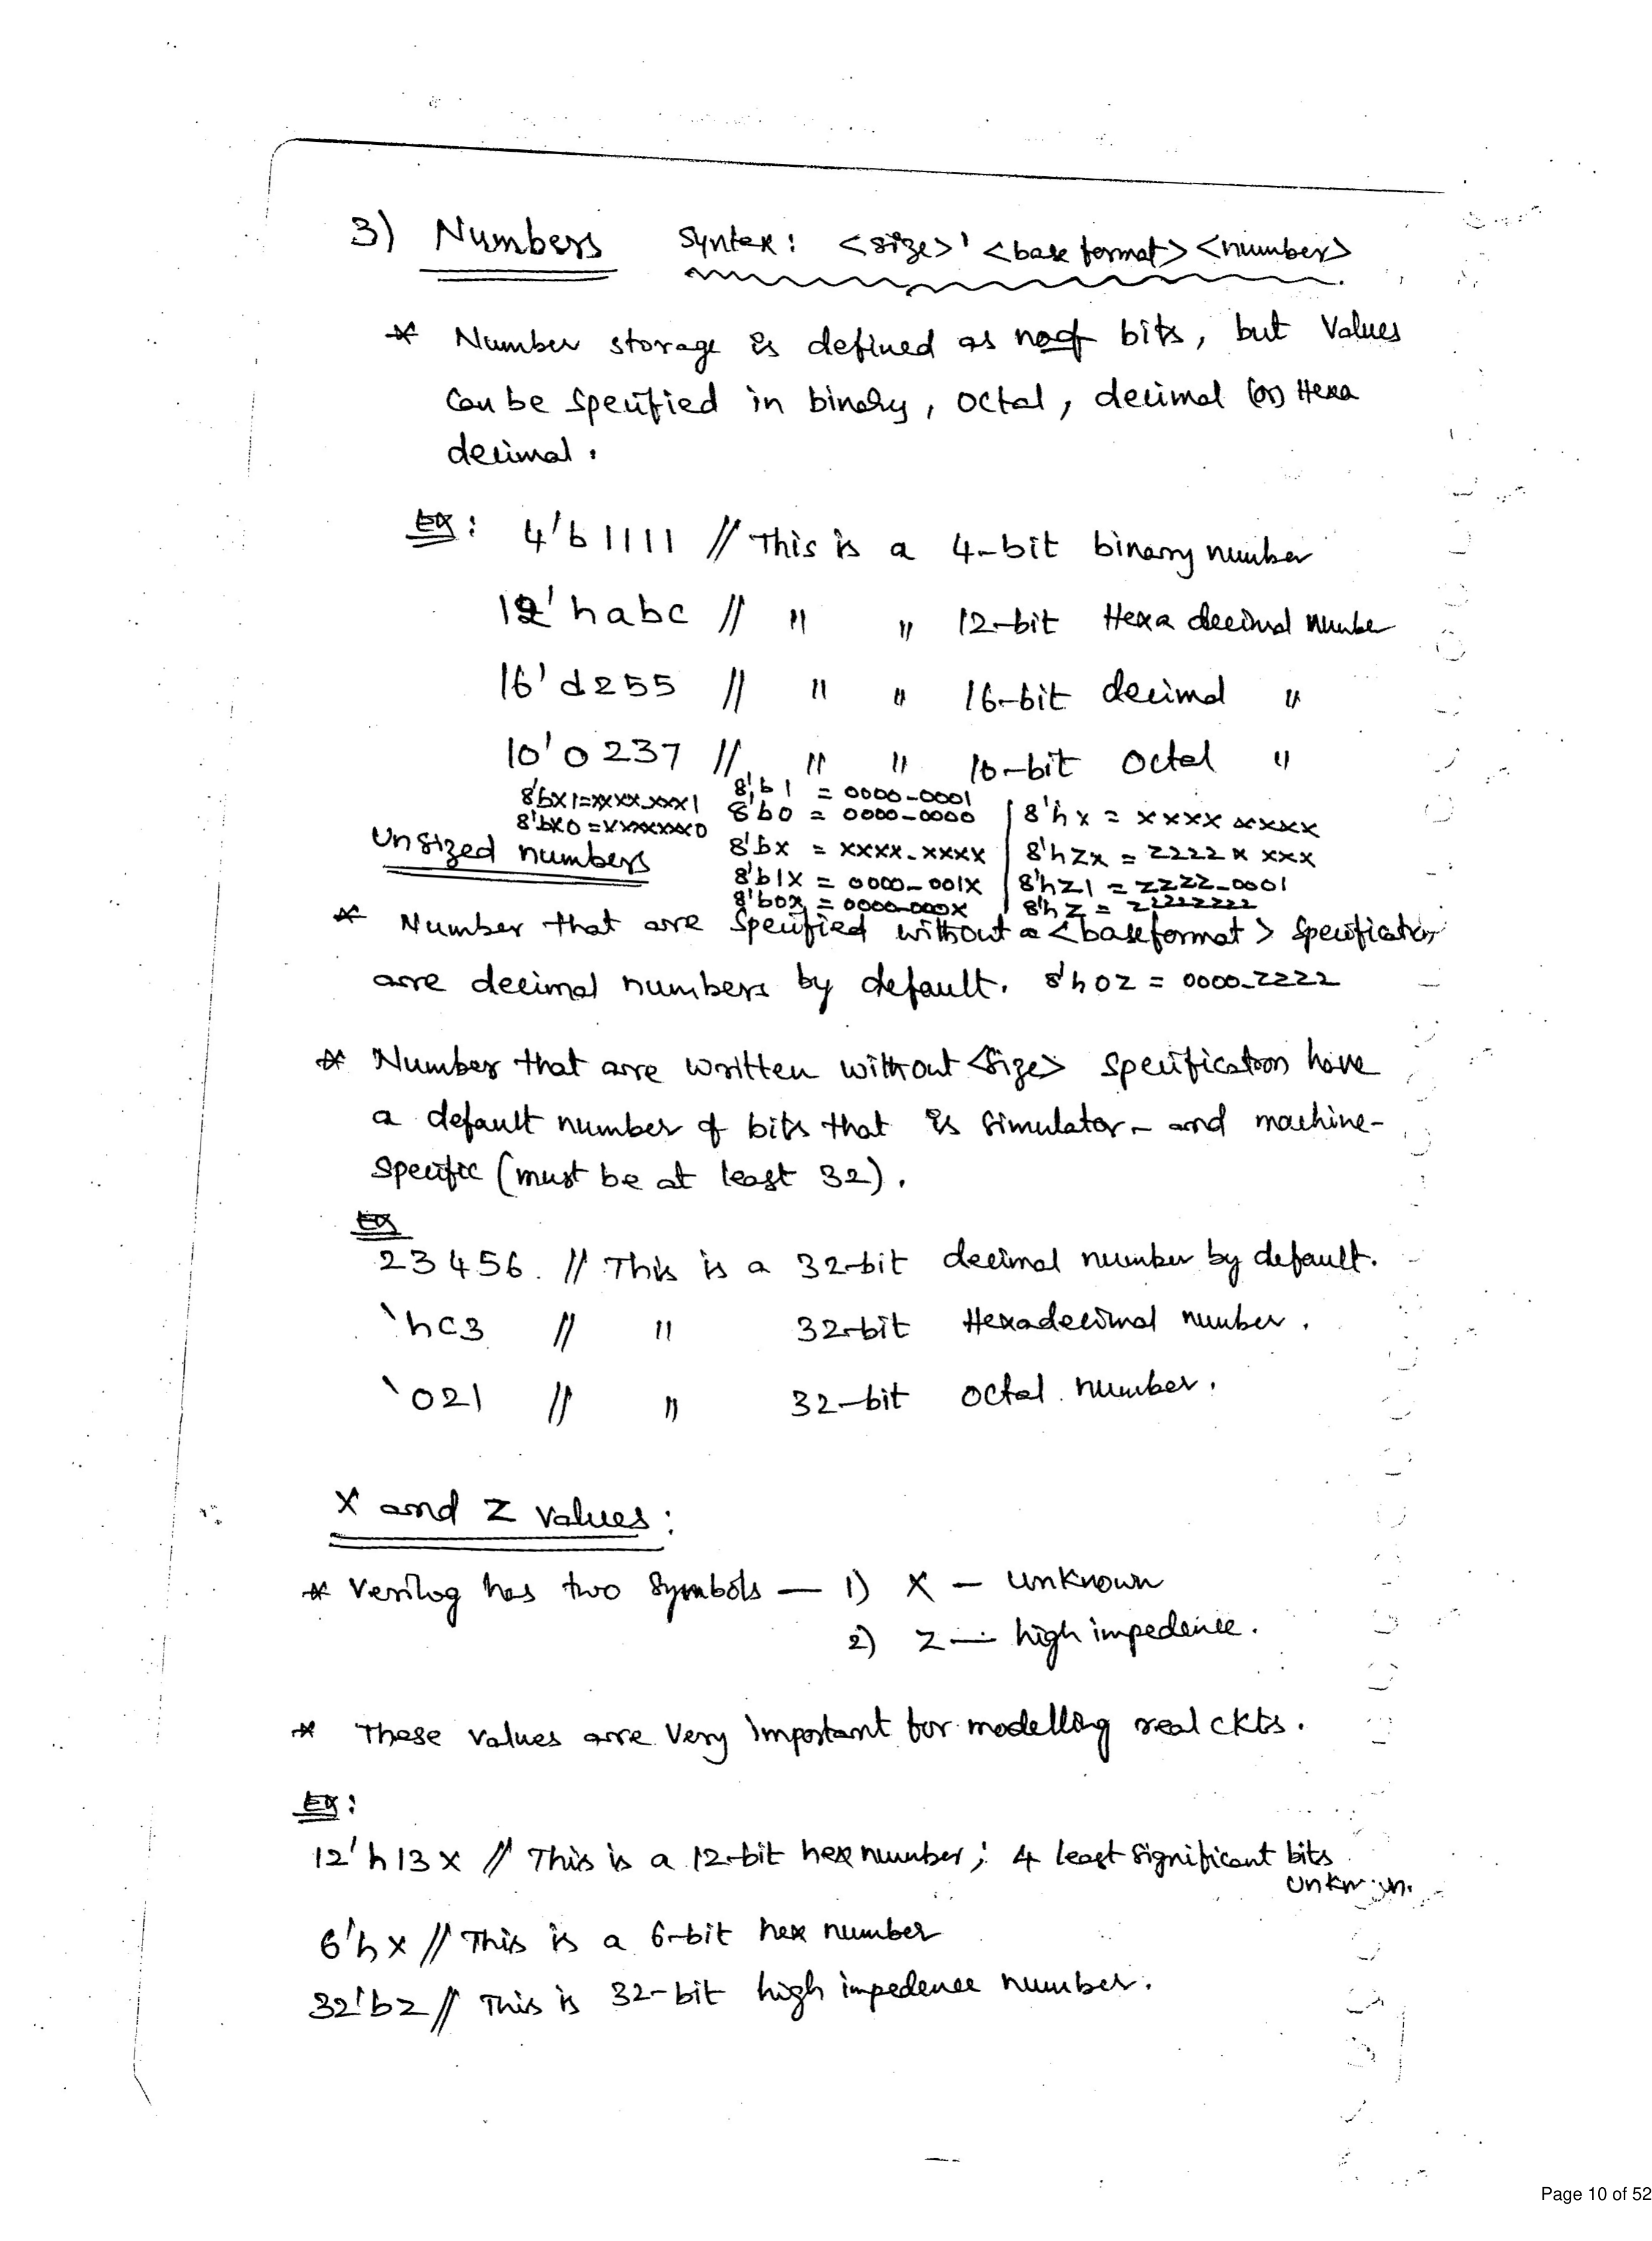 3) Numbers Syntax: <size>' <base format><number>
* Number storage is defined as no of bits, but Values
can be specified in binary, octal, decimal (or) Hexa
decimal.
Ex: 4'b1111 // This is a 4-bit binary number
12'habc // " " 12-bit Hexa decimal number
16'd255 // " " 16-bit decimal "
10'o237 // " " 10-bit octal "
8'bx1=xxxx_xxx1 8'b1 = 0000-0001
8'bx0=xxxxxxx0 8'b0 = 0000-0000 | 8'hx = xxxx xxxx
Unsized numbers 8'bx = xxxx-xxxx | 8'hzx = zzzz x xxx
8'b1x = 0000-001x | 8'hz1 = zzzz-0001
8'b0x = 0000-000x | 8'hz = zzzzzzzz
* Number that are specified without a <baseformat> specification
are decimal numbers by default. 8'h0z = 0000-zzzz
* Number that are written without <size> specification have
a default number of bits that is simulator- and machine-
specific (must be at least 32).
Ex
23456. // This is a 32-bit decimal number by default.
`hc3 // " 32-bit Hexadecimal number.
`o21 // " 32-bit octal number.
X and Z values:
* Verilog has two symbols — 1) X — unknown
2) Z — high impedence.
* These values are Very important for modelling real ckts.
Ex:
12'h13x // This is a 12-bit hex number; 4 least significant bits
unknown.
6'hx // This is a 6-bit hex number
32'bz // This is 32-bit high impedence number.
Page 10 of 52